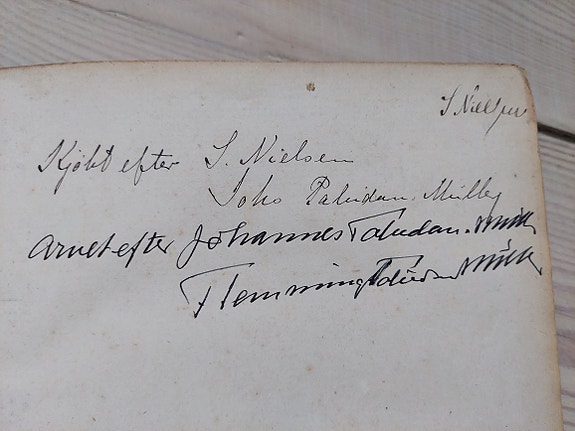 S Nielsen
Kjöbt efter S. Nielsen
Johs Paludan-Müller
Arvet efter Johannes Paludan-Müll
Flemming Paludan Müll